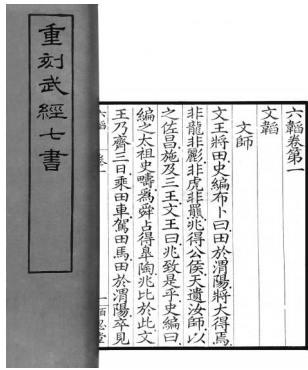 重刻武經七書
六韜卷第一
文韜
文師
文王將田史編布卜曰田於渭陽將大得焉
非龍非彲非虎非羆兆得公侯天遺汝師以
之佐昌施及三王文王曰兆致是乎史編曰
編之太祖史疇爲舜占得皐陶兆比於此文
王乃齊三日乘田車駕田馬田於渭陽卒見
六韜 卷一